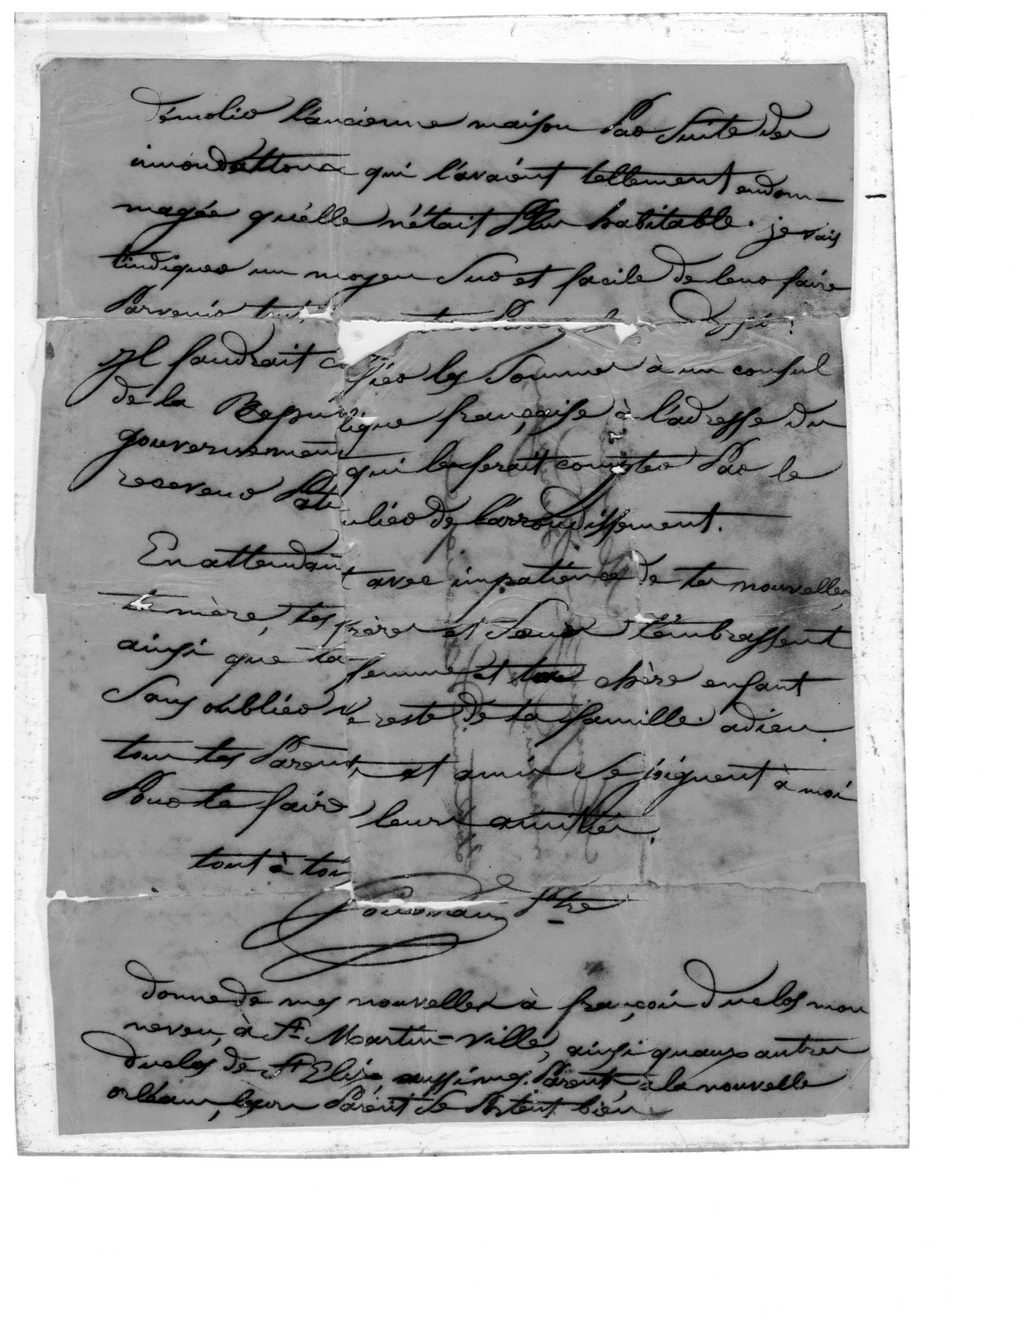 démolir l'ancienne maison par suite des
innondations qui l'avaient tellement endom-
magée qu'elle n'était plus habitable. je vais
t'indiquer un moyen sur et facile de leur faire
parvenir
Il faudrait confier les sommes à un consul
de la Republique françaises à l'adresse du
gouvernement qui les ferait compter par le
receveur particulier de l'arrondissement.
En attendant avec impatience de tes nouvelles,
ta mère, tes frères et Sœurs t'embrassent
ainsi que ta femme et ton chère enfant
Sans oublier le reste de ta famille. adieu.
tous tes Parents et amis se joignent à moi
Pour te faire leurs amitiés.
tout à toi
donne de mes nouvelles à françois Duclos mon
neveu, à St Martin-Ville, ainsi qu'aux autres
Duclos de aussi mes Parents, à la nouvelle
orléans, leurs Parents se portent bien